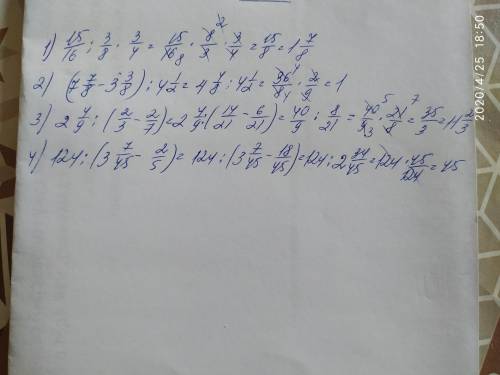 1) 15/16 : 3/8 · 3/4 = 15/16 · 8/3 · 3/4 = 15/8 = 1 7/8
2) (7 7/8 - 3 3/8) : 4 1/2 = 4 4/8 : 4 1/2 = 36/8 · 2/9 = 1
3) 2 4/9 : (2/3 - 2/7) = 2 4/9 : (14/21 - 6/21) = 40/9 : 8/21 = 40/9 · 21/8 = 35/3 = 11 2/3
4) 124 : (3 7/45 - 2/5) = 124 : (3 7/45 - 18/45) = 124 : 2 34/45 = 124 · 45/124 = 45
2020/4/25 18:50